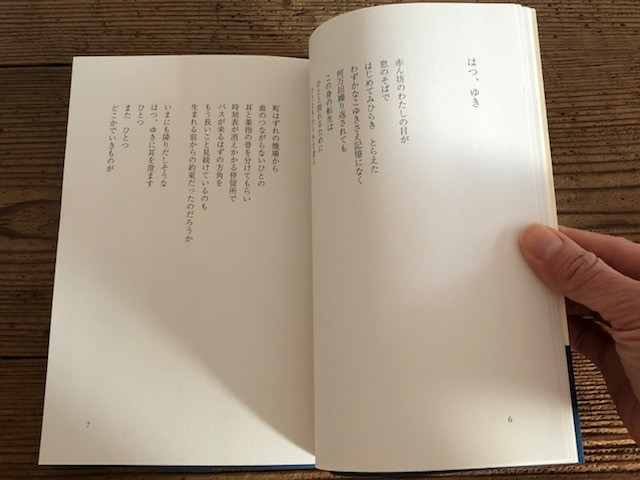 はつ、ゆき
赤ん坊のわたしの目が
窓のそばで
はじめてみひらき　とらえた
わずかなこゆきさえ記憶になく
何万回繰り返されても
この身の転生は
6
町はずれの焼場から
血のつながらないひとの
耳と薬指の骨を分けてもらい
時刻表が消えかかる停留所で
バスが来るはずの方角を
もう長いこと見続けているのも
生まれる前からの約束だったのだろうか
いまにも降りだしそうな
はつ、ゆきに耳を澄ます
ひとつ
また　ひとつ
どこかでいきものが
7